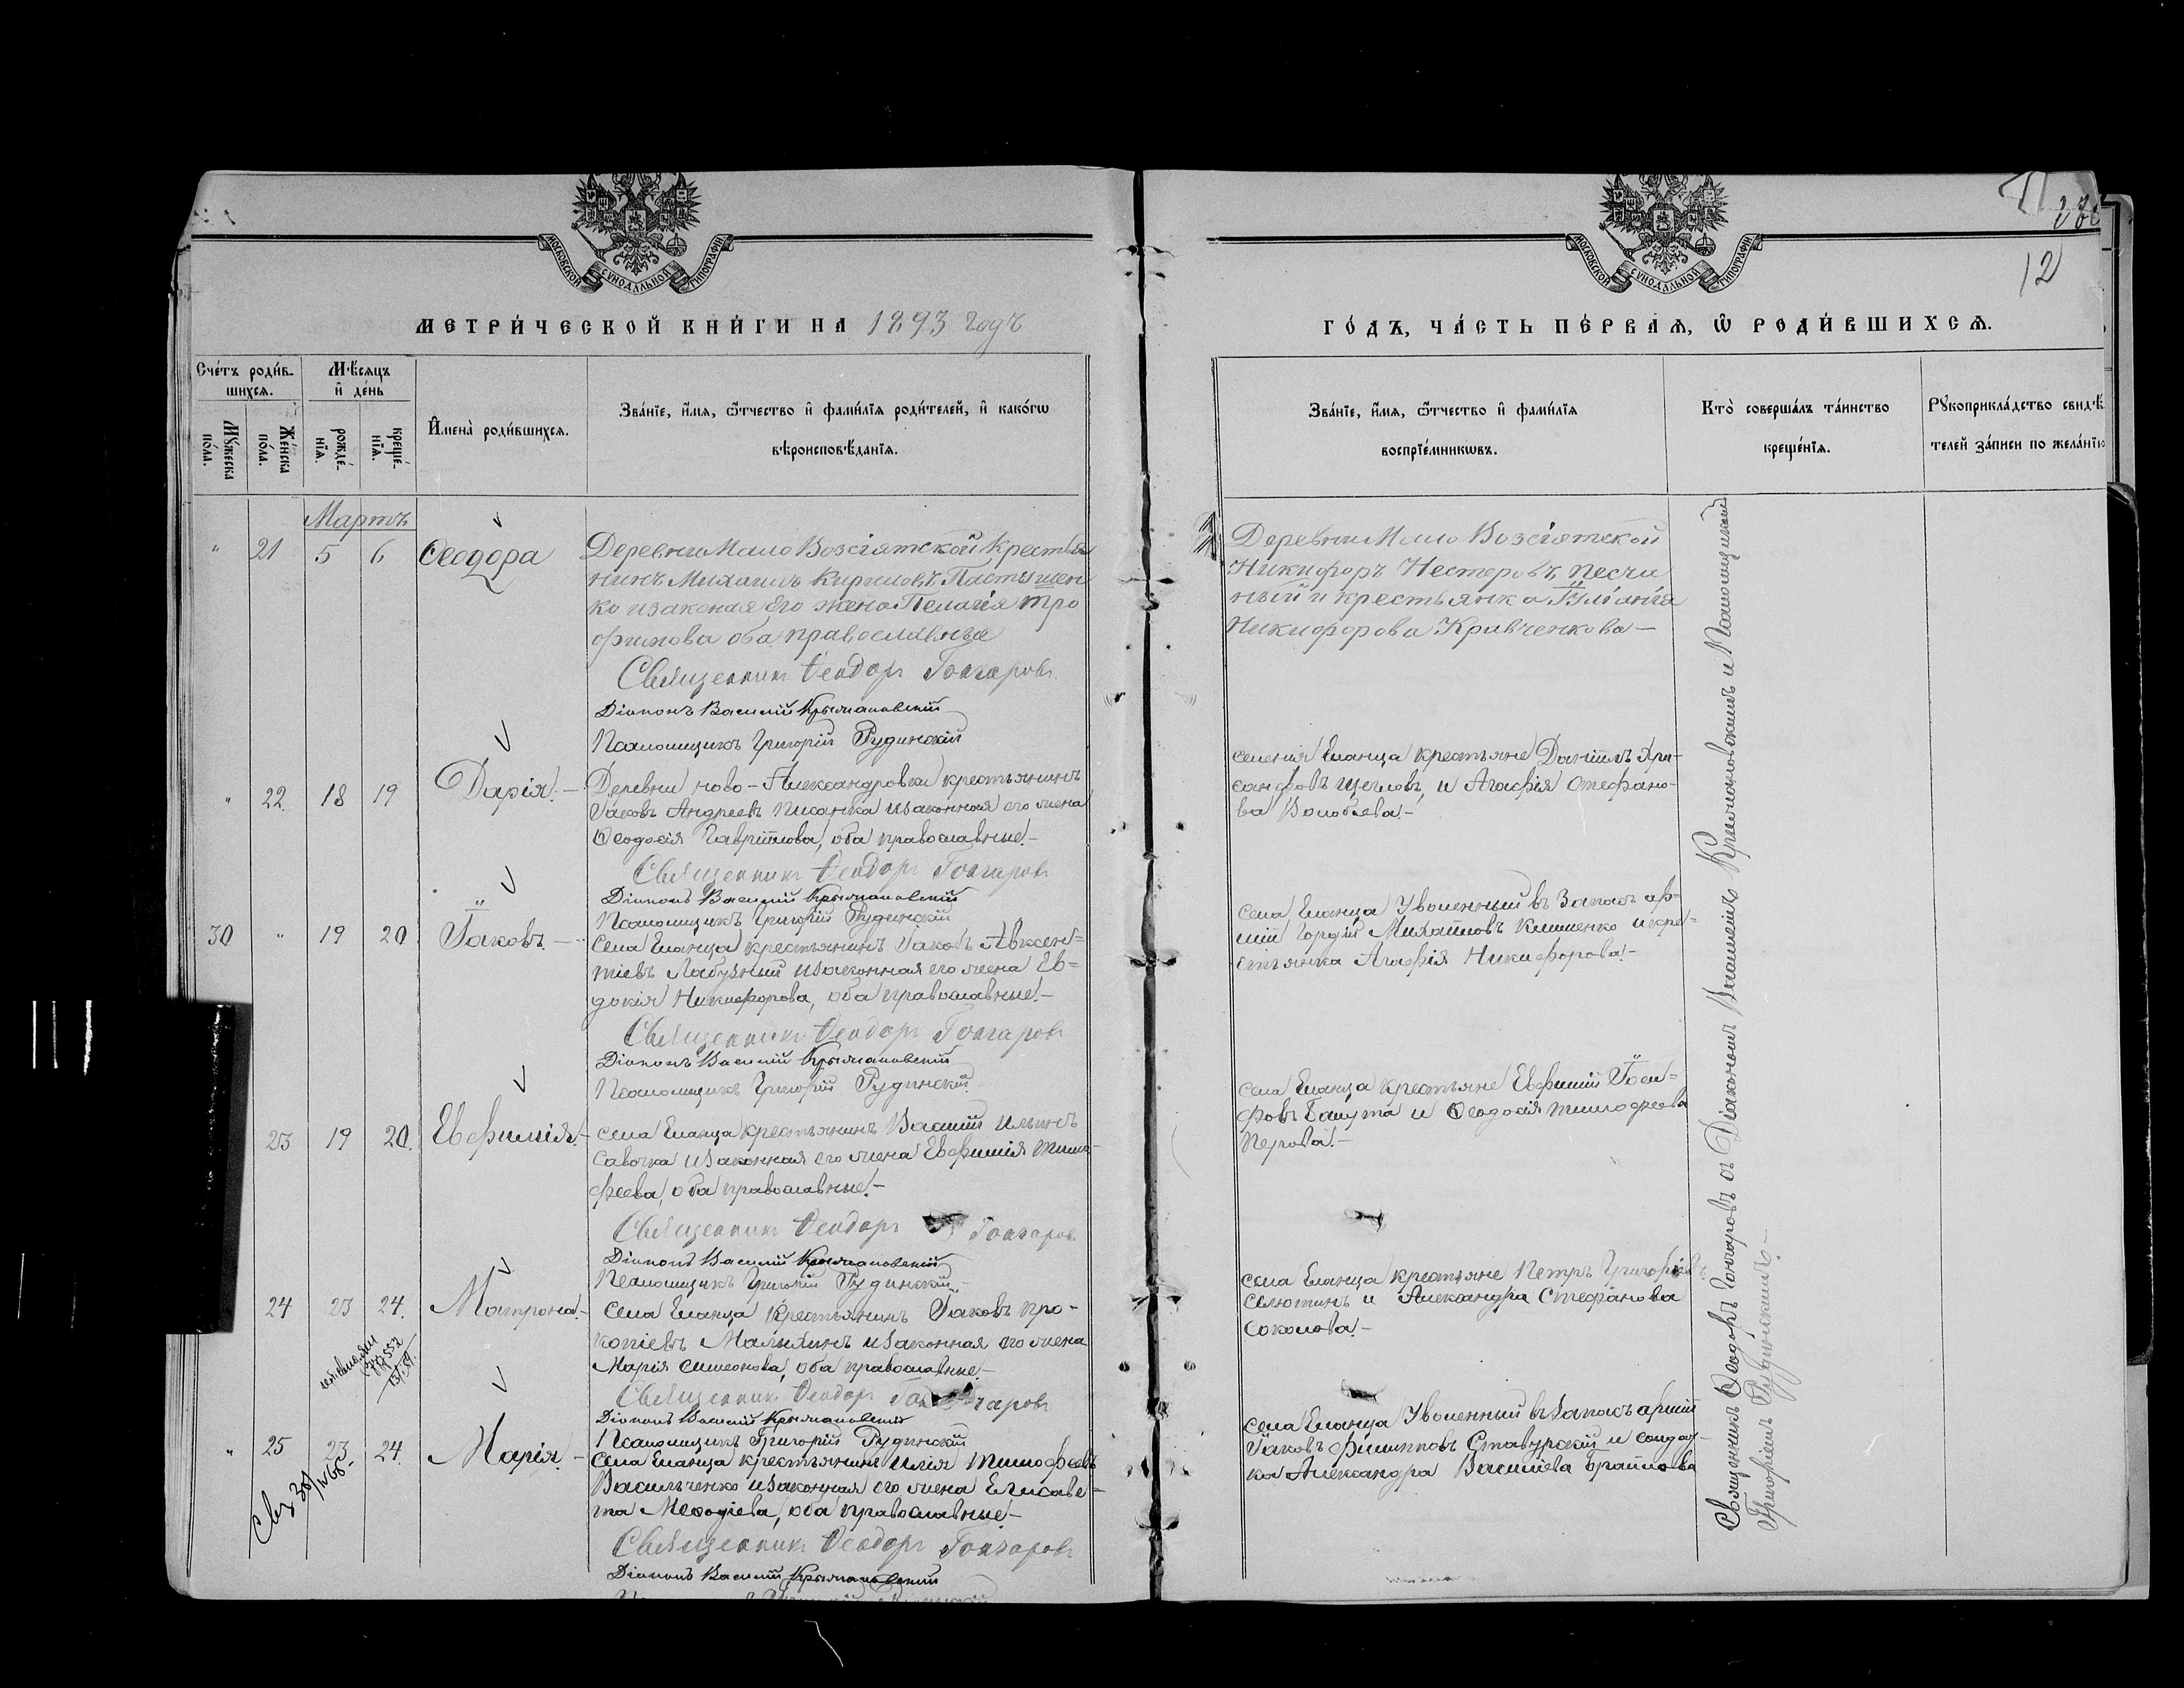 МОСКОВСКОЙ СѴНОДАЛЬНОЙ ТИПОГРАФІИ
МЕТРИ́ЧЕСКОЙ КНИ́ГИ НА 1893 годъ
Сче́тъ роди́в-
шихсѧ.
Мѣ́сяцъ
и҆ де́нь
Мꙋ́жеска
по́ла.
Же́нска
по́ла.
рожде́-
нїѧ.
креще́-
нїѧ.
И҆мена̀ роди́вшихсѧ.
Зва́нїе, и҆́мѧ, ѻ҆́тчество и҆ фами́лїѧ роди́телей, и҆ како́гѡ
вѣроисповѣ́данїѧ.
Мартъ
" 21 5 6 Ѳеодора
Деревни Мало Возсіятской Крестья
нинъ Михаилъ Кириловъ Пастушен
ко изаконая его жена Пелагія Тро
фимова оба православныя
Священникъ Ѳеодоръ Гончаровъ
Діаконъ Василій Крыжановскій
Псаломщикъ Григорій Рудинскій
" 22 18 19 Дарія. –
Деревни ново-Александровки крестьянинъ
Іаковъ Андреевъ Писанка изаконная его жена
Ѳеодосія Гавріилова, оба православные. –
Священникъ Ѳеодоръ Гончаровъ
Діаконъ Василій Крыжановскій
Псаломщикъ Григорій Рудинскій
30 " 19 20 Іаковъ. –
Села Еланца крестьянинъ Іаковъ Авксен=
тіевъ Лабузный изаконная его жена Ев=
докія Никифорова, оба православные. –
Священникъ Ѳеодоръ Гончаровъ
Діаконъ Василій Крыжановскій
Псаломщикъ Григорій Рудинскій
23 19 20. Евфимія. –
Села Еланца крестьянинъ Василій Ильинъ
Савочка изаконная его жена Евфимія Тимо-
феева, оба православные. –
Священникъ Ѳеодоръ Гончаровъ
Діаконъ Василій Крыжановскій
Псаломщикъ Григорій Рудинскій
24 23 24. Матрона. –
Села Еланца Крестьянинъ Іаковъ Про-
копіевъ Малыхинъ изаконная его жена
Марія Симеонова, оба православные. –
Священникъ Ѳеодоръ Гончаровъ
Діаконъ Василій Крыжановскій
Псаломщикъ Григорій Рудинскій
" 25 23 24. Марія. –
Села Еланца крестьянинъ Илія Тимофеевъ
Васильченко изаконная его жена Елисаве-
та Меѳодіева, оба православные. –
Священникъ Ѳеодоръ Гончаровъ
Діаконъ Василій Крыжановскій
МОСКОВСКОЙ СѴНОДАЛЬНОЙ ТИПОГРАФІИ
12
ГО́ДЪ, ЧА́СТЬ ПЕ́РВАѦ, Ѡ҆ РОДИ́ВШИХСѦ.
Зва́нїе, и҆́мѧ, ѻ҆́тчество и҆ фами́лїѧ
воспрїе́мникѡвъ.
Кто̀ соверша́лъ та́инство
креще́нїѧ.
Рꙋкоприкла́дство свидѣ́-
телей за́писи по жела́нїю
Деревни Мало Возсіятской
Никифоръ Нестеровъ песчи
ный и крестьянка Іуліанія
Никифорова Кравченкова –
селенія Еланца крестьяне Даніилъ Хри-
санфовъ Щегловъ, и Агафія Стефано-
ва Воробьева. –
Села Еланца Уволенный въ Запасъ ар-
міи Гордій Михайловъ Клименко и кре=
стьянка Агафія Никифорова. –
Села Еланца крестьяне Евфимій Іоси=
фовъ Бакута и Ѳеодосія Тимофеева
Перова. –
Села Еланца крестьяне Петръ Григоріевъ
Селютинъ и Александра Стефанова
Соколова. –
Села Еланца Уволенный въ Запасъ арміи
Іаковъ Филипповъ Ставурскій и солдат-
ка Александра Василіева Браилова
Священникъ Ѳеодоръ Гончаровъ съ Діакономъ Василіемъ Крыжановскимъ и Псаломщикомъ
Григоріемъ Рудинскимъ. –